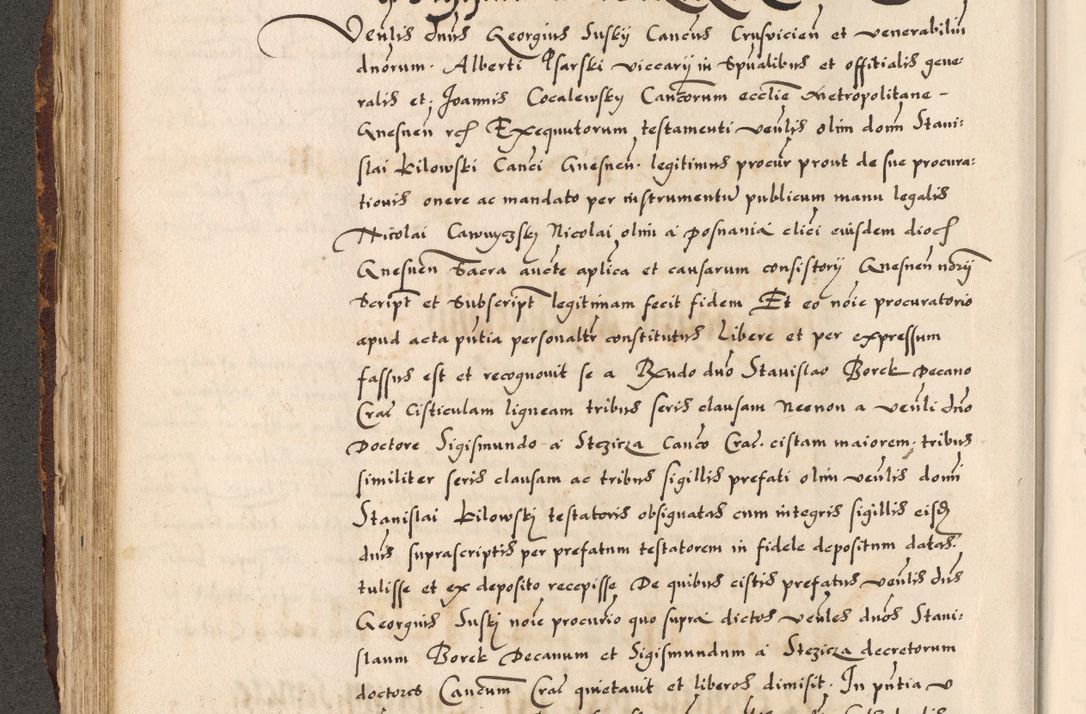 Venlis dnus Georgius Suskÿ Cancus Crusvicien et venerabiliu
dnorum. Alberti Psarski viccarÿ in Spualibus et offitialis gene:
ralis et; Joannis Cocalewskÿ Cancorum ecclie Metropolitane -
Gnesnen rch Exequutorum testamenti venlis olim domi Stani:
slai Kilowski Canci Gnesnen. legitimus procur prout de sue procura:
tionis onere ac mandato per instrumentu publicum manu legalis
Nicolai Nicolai olim a posnania clici eiusdem dioch
Gnesnen Sacra aucte aplica et causarum consistorÿ Gnesnen norÿ
Script et Subscript legitimam fecit fidem Et eo noie procuratorio
apud acta pntia personaltr constitutus Libere et per expressum
fassus est et recognovit se a Rndo dno Stanislao Borek Decano
Crac Cisticulam ligneam tribus seris clausam Necnon a venli dno
Doctore Sigismundo a Stezicza Canco Crac. cistam maiorem. tribus
similiter seris clausam ac tribus sigillis prefati olim venlis domi
Stanislai Kilowskj testatoris obsignatas cum integris sigillis eisd
dnis suprascriptis per prefatum testatorem in fidele depositum datas.
tulisse et ex deposito recepisse De quibus cistis prefatus venlis dns
Georgius Suskj noie procurio quo supra dictos venles dnos Stani:
slaum Borek Decanum et Sigismundum a Stezicza decretorum
doctores Cancum Crac quietavit et liberos dimisit. In pntia v